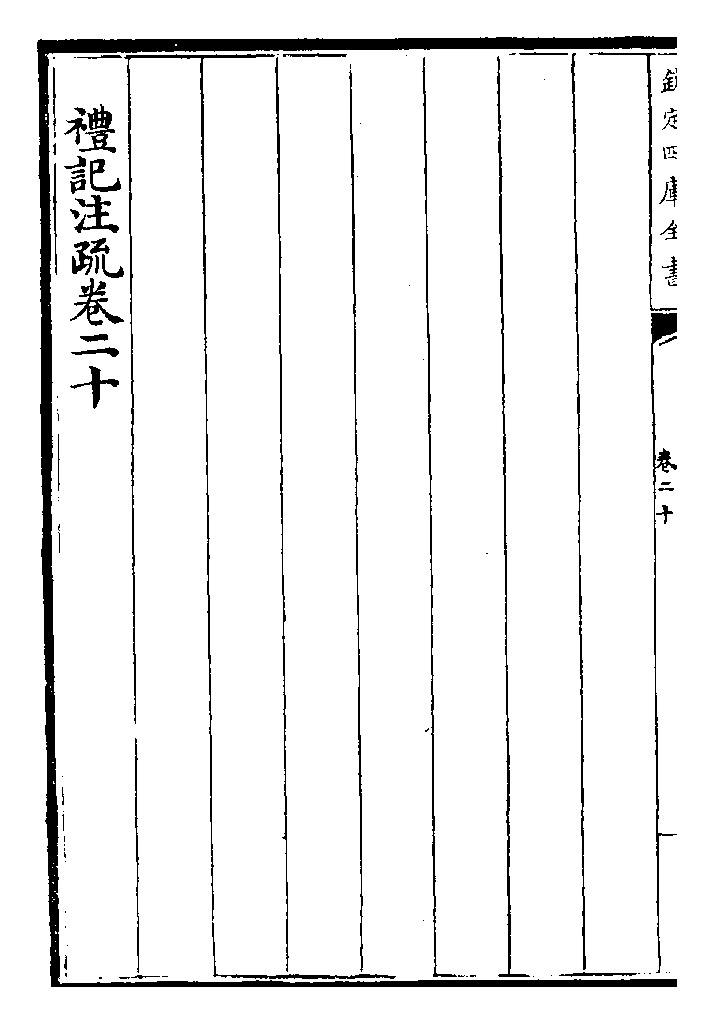 欽定四庫全書
卷二十
禮記注疏卷二十